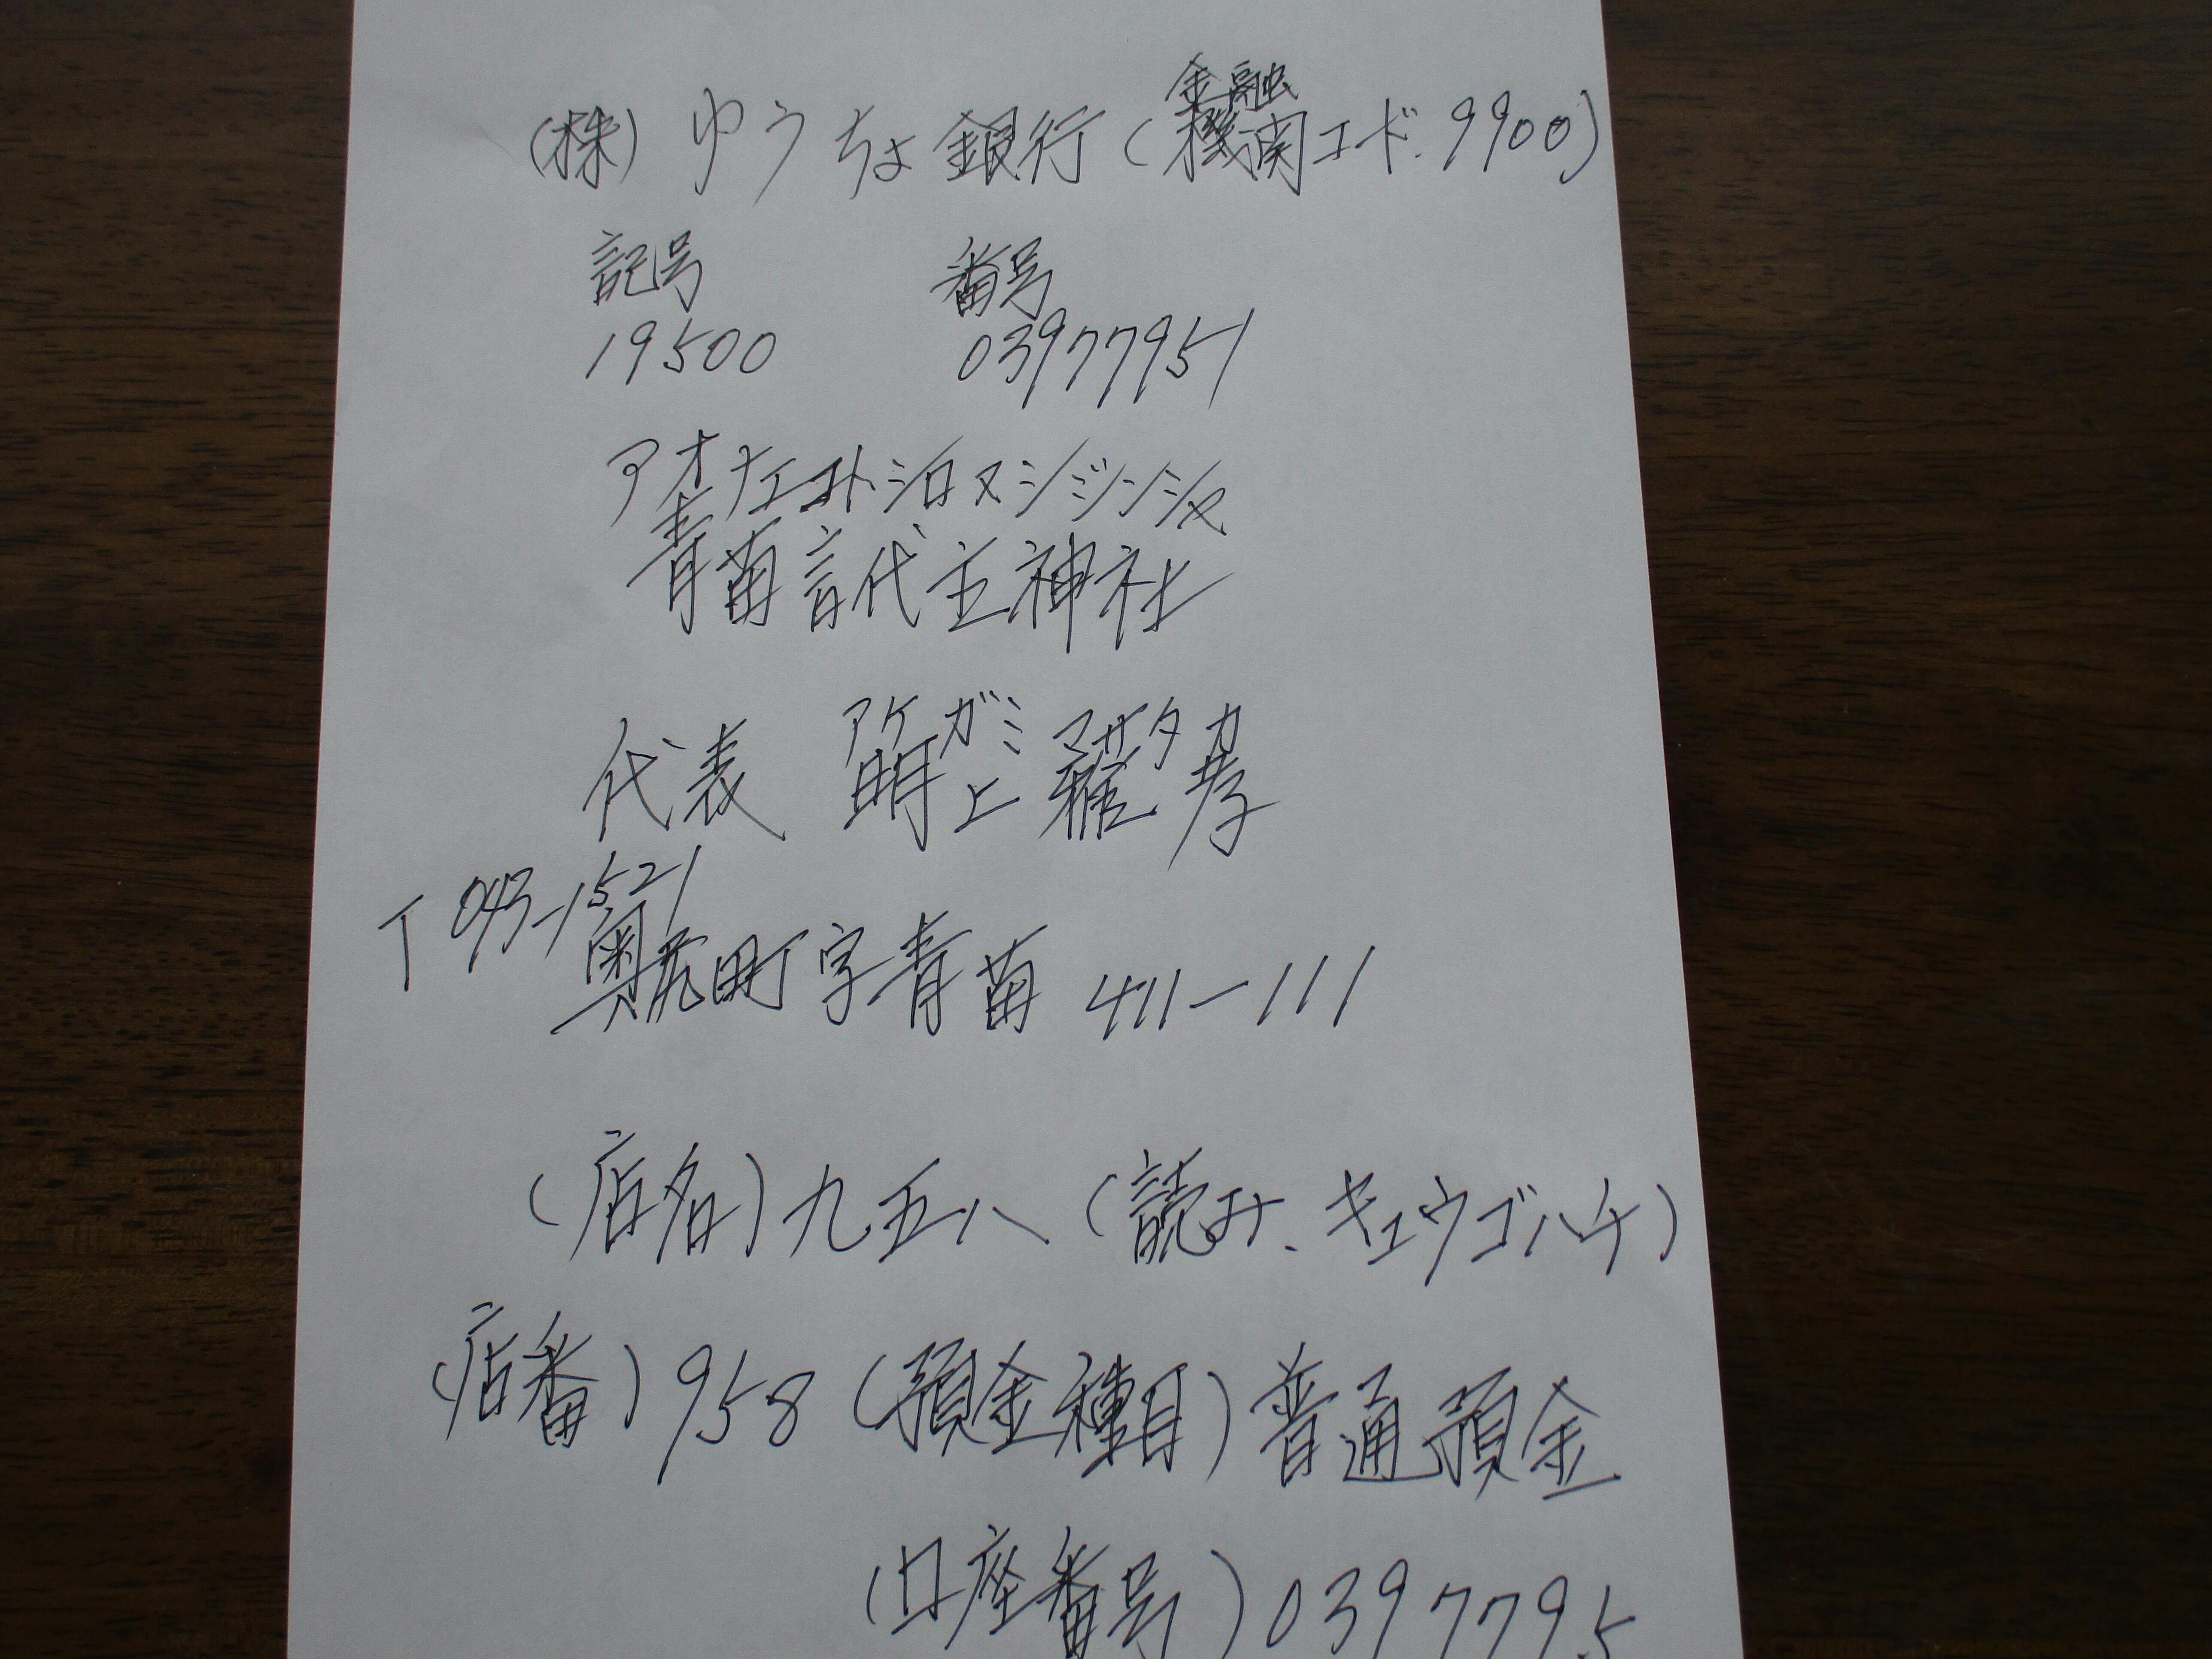 (株)ゆうちょ銀行(金融機関コード.9900)
記号 番号
19500 03977951
アオナエコトシロヌシジンジャ
青苗言代主神社
アケガミ マサタカ
代表 明上雅孝
〒043-1521
奥尻町字青苗411-111
(店名)九五八(読み、キュウゴハチ)
(店番)958(預金種目)普通預金
(口座番号)0397795